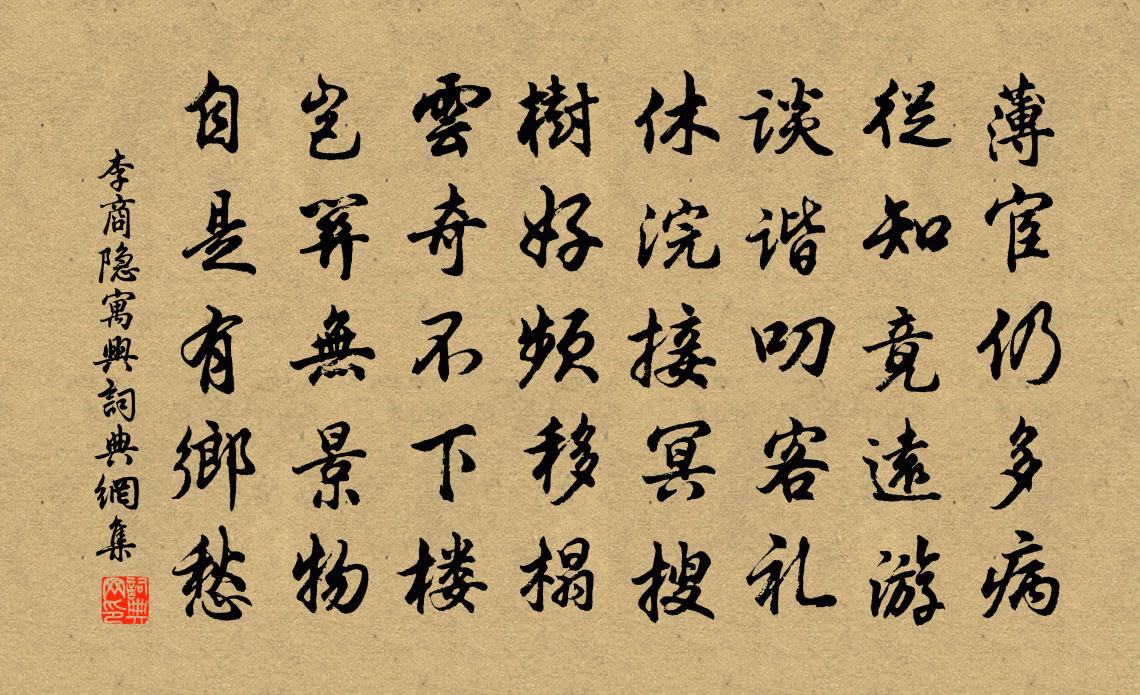 薄宦仍多病
從知竟遠游
谈谐叨客礼
休浣接冥搜
樹好频移榻
雲奇不下楼
岂關無景物
自是有鄉愁
李商隐寓興詞典網集
詞典网印